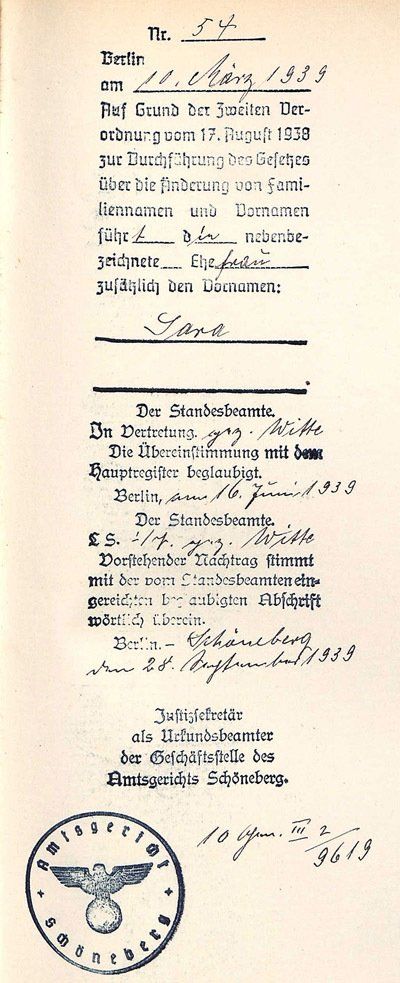 Nr. 54
Berlin
am 10. März 1939
Auf Grund der Zweiten Ver-
ordnung vom 17. August 1938
zur Durchführung des Gesetzes
über die Änderung von Fami-
liennamen und Vornamen
führt die nebenbe-
zeichnete Ehefrau
zusätzlich den Vornamen:
Sara
Der Standesbeamte.
In Vertretung. gez. Witte
Die Übereinstimmung mit dem
Hauptregister beglaubigt.
Berlin, am 16. Juni 1939
Der Standesbeamte.
L S. gez. Witte
Vorstehender Nachtrag stimmt
mit der vom Standesbeamten ein-
gereichten beglaubigten Abschrift
wörtlich überein.
Berlin.- Schöneberg
den 28. September 1939
Justizsekretär
als Urkundsbeamter
der Geschäftsstelle des
Amtsgerichts Schöneberg.
10 Gen. III 2/9619
Amtsgericht
Schöneberg